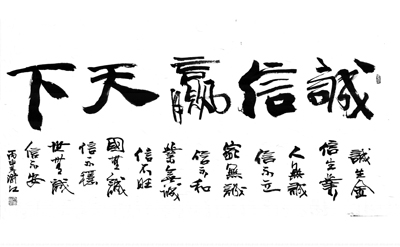 誠信贏天下
誠生金
信生業
人無誠
信不立
家無誠
信不和
業無誠
信不旺
國無誠
信不穩
世無誠
信不安